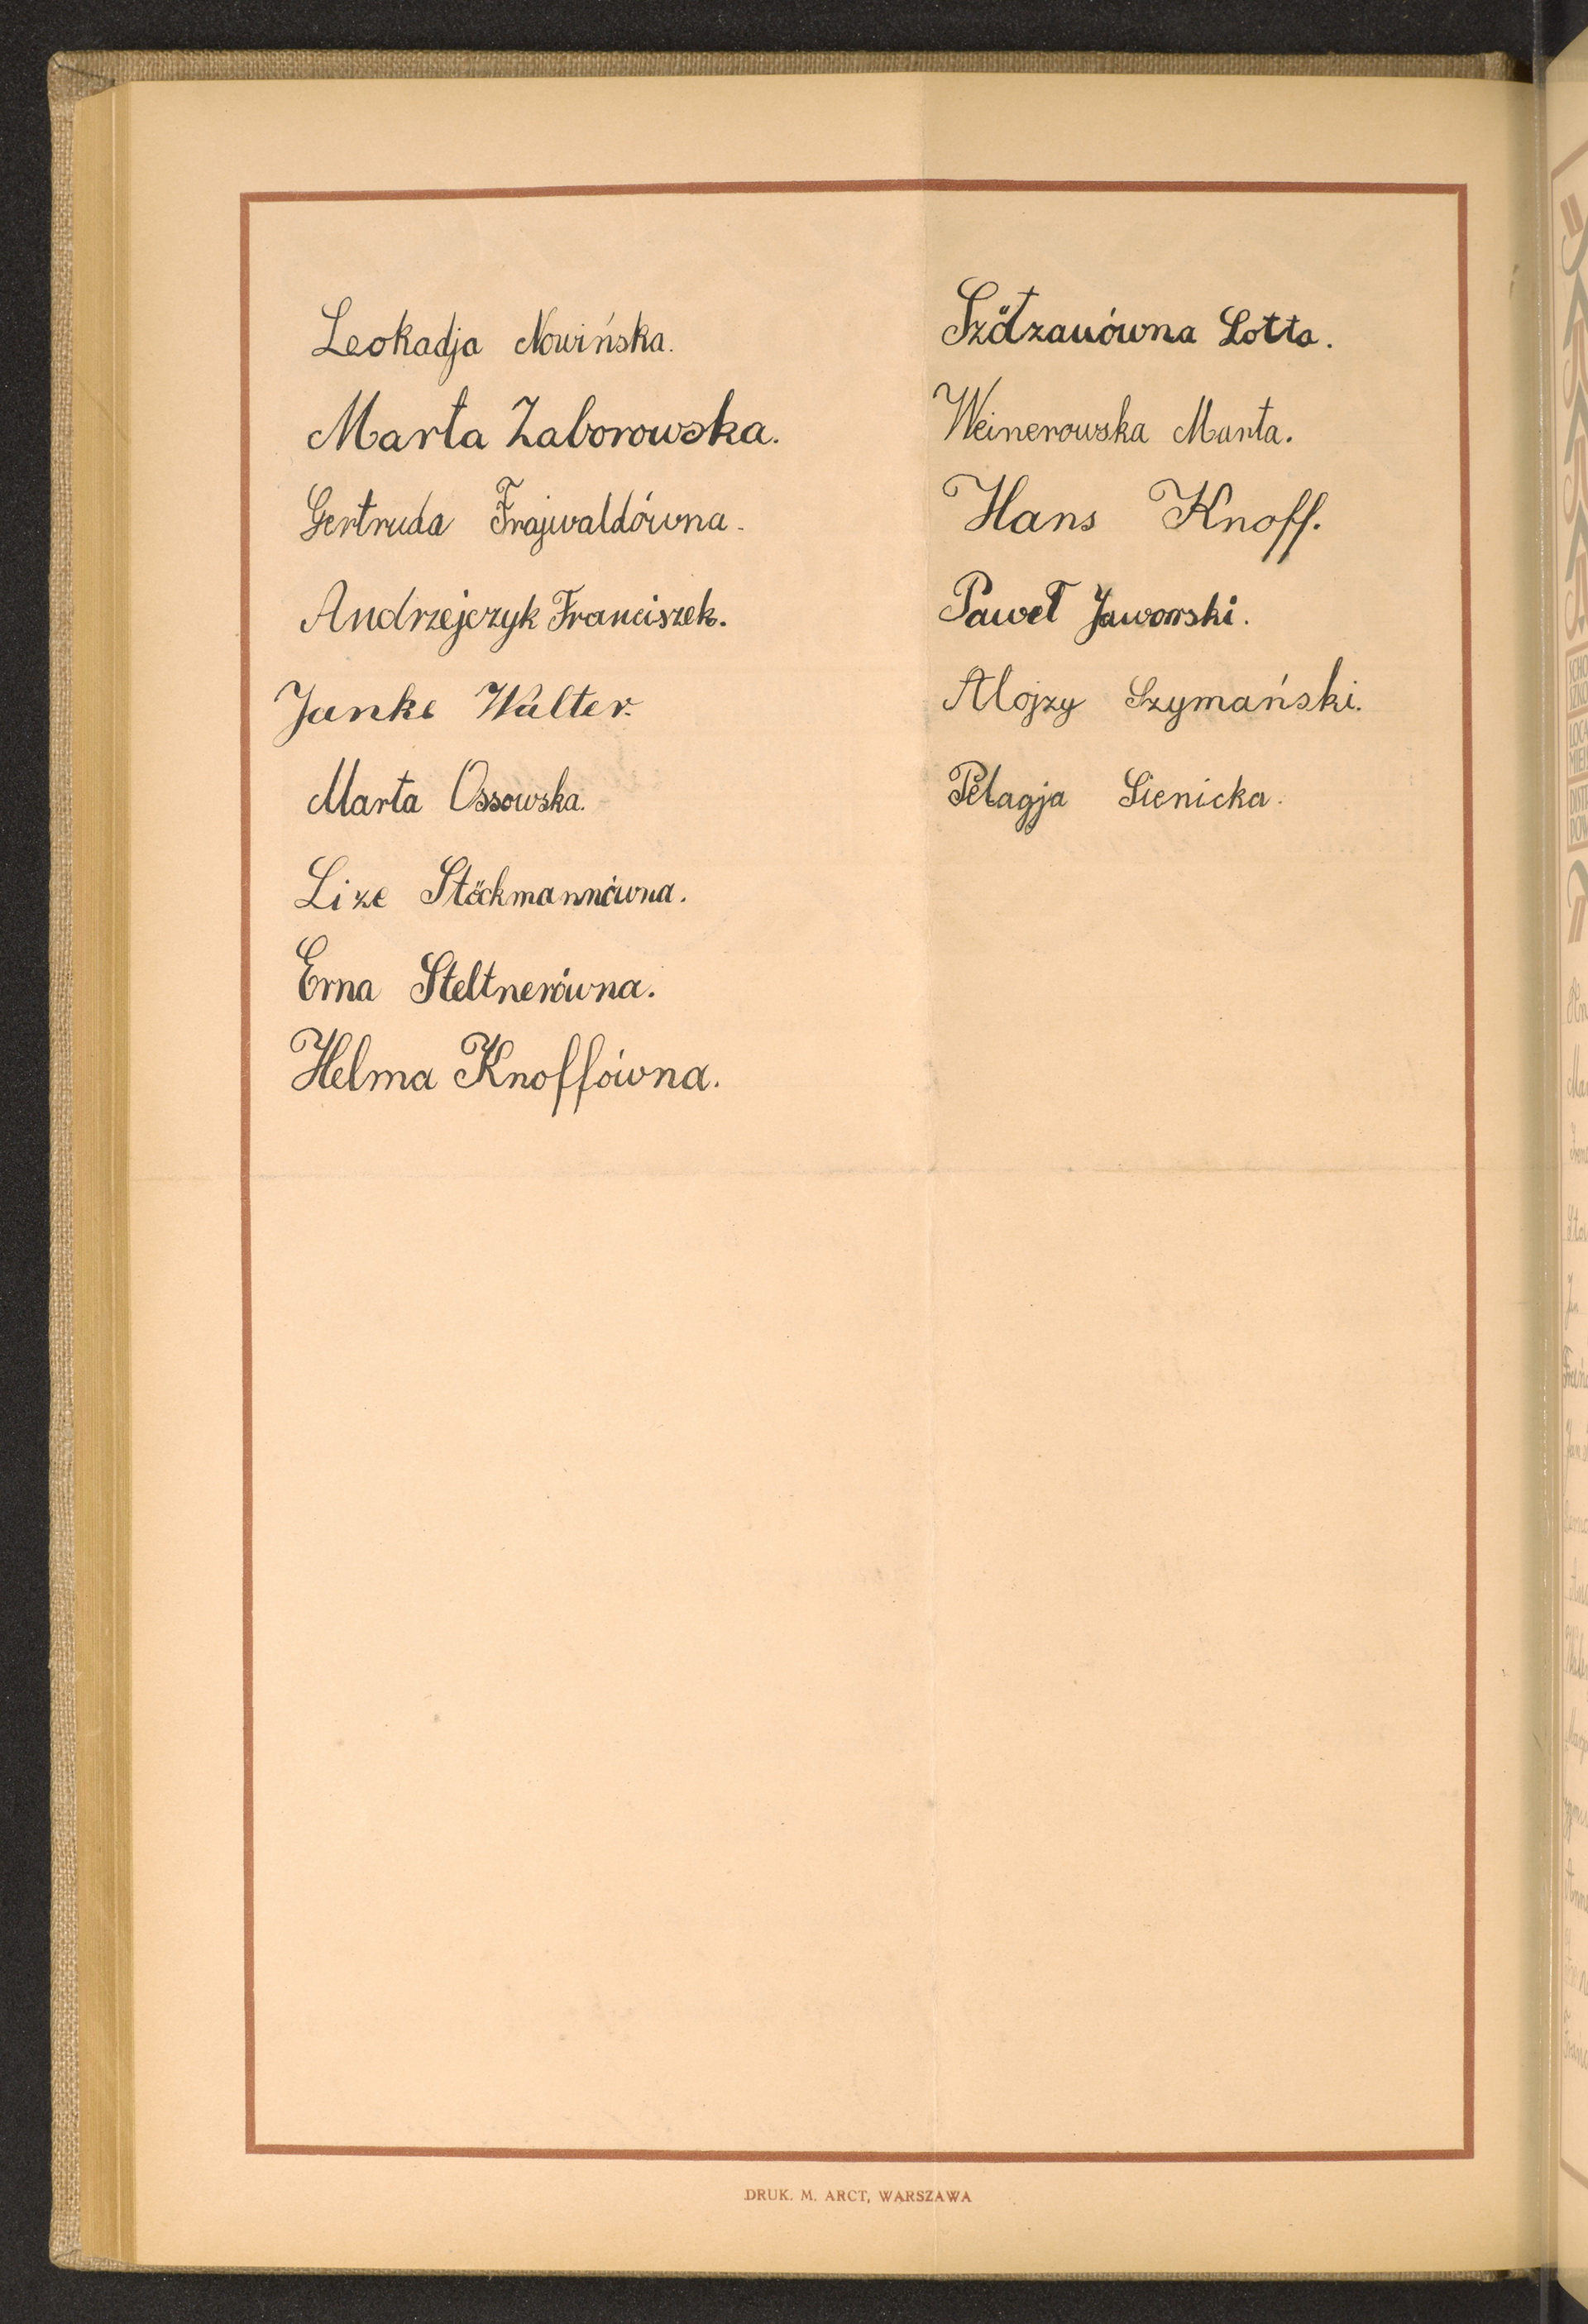 Leokadja Nowińska.
Marta Zaborowska.
Gertruda Frajwaldówna.
Andrzejczyk Franciszek.
Janke Walter.
Marta Ossowska.
Lize Stöckmannówna.
Erna Steltnerówna.
Helma Knoffówna.
Lotta.
Weinerowska Marta.
Hans Knoff.
Paweł Jaworski.
Alojzy Szymański.
Pelagja Sienicka.
DRUK. M. ARCT, WARSZAWA